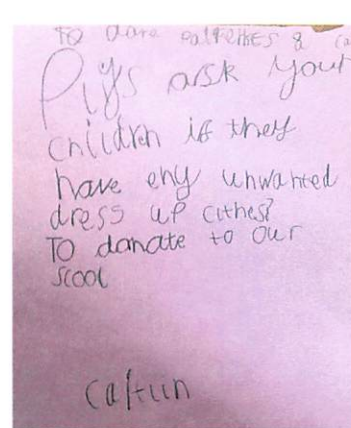 To dare & ca
Plys arsk yout
children if they
have eny unwanted
dress up cuthes?
To donate to our
scool
Caitlin